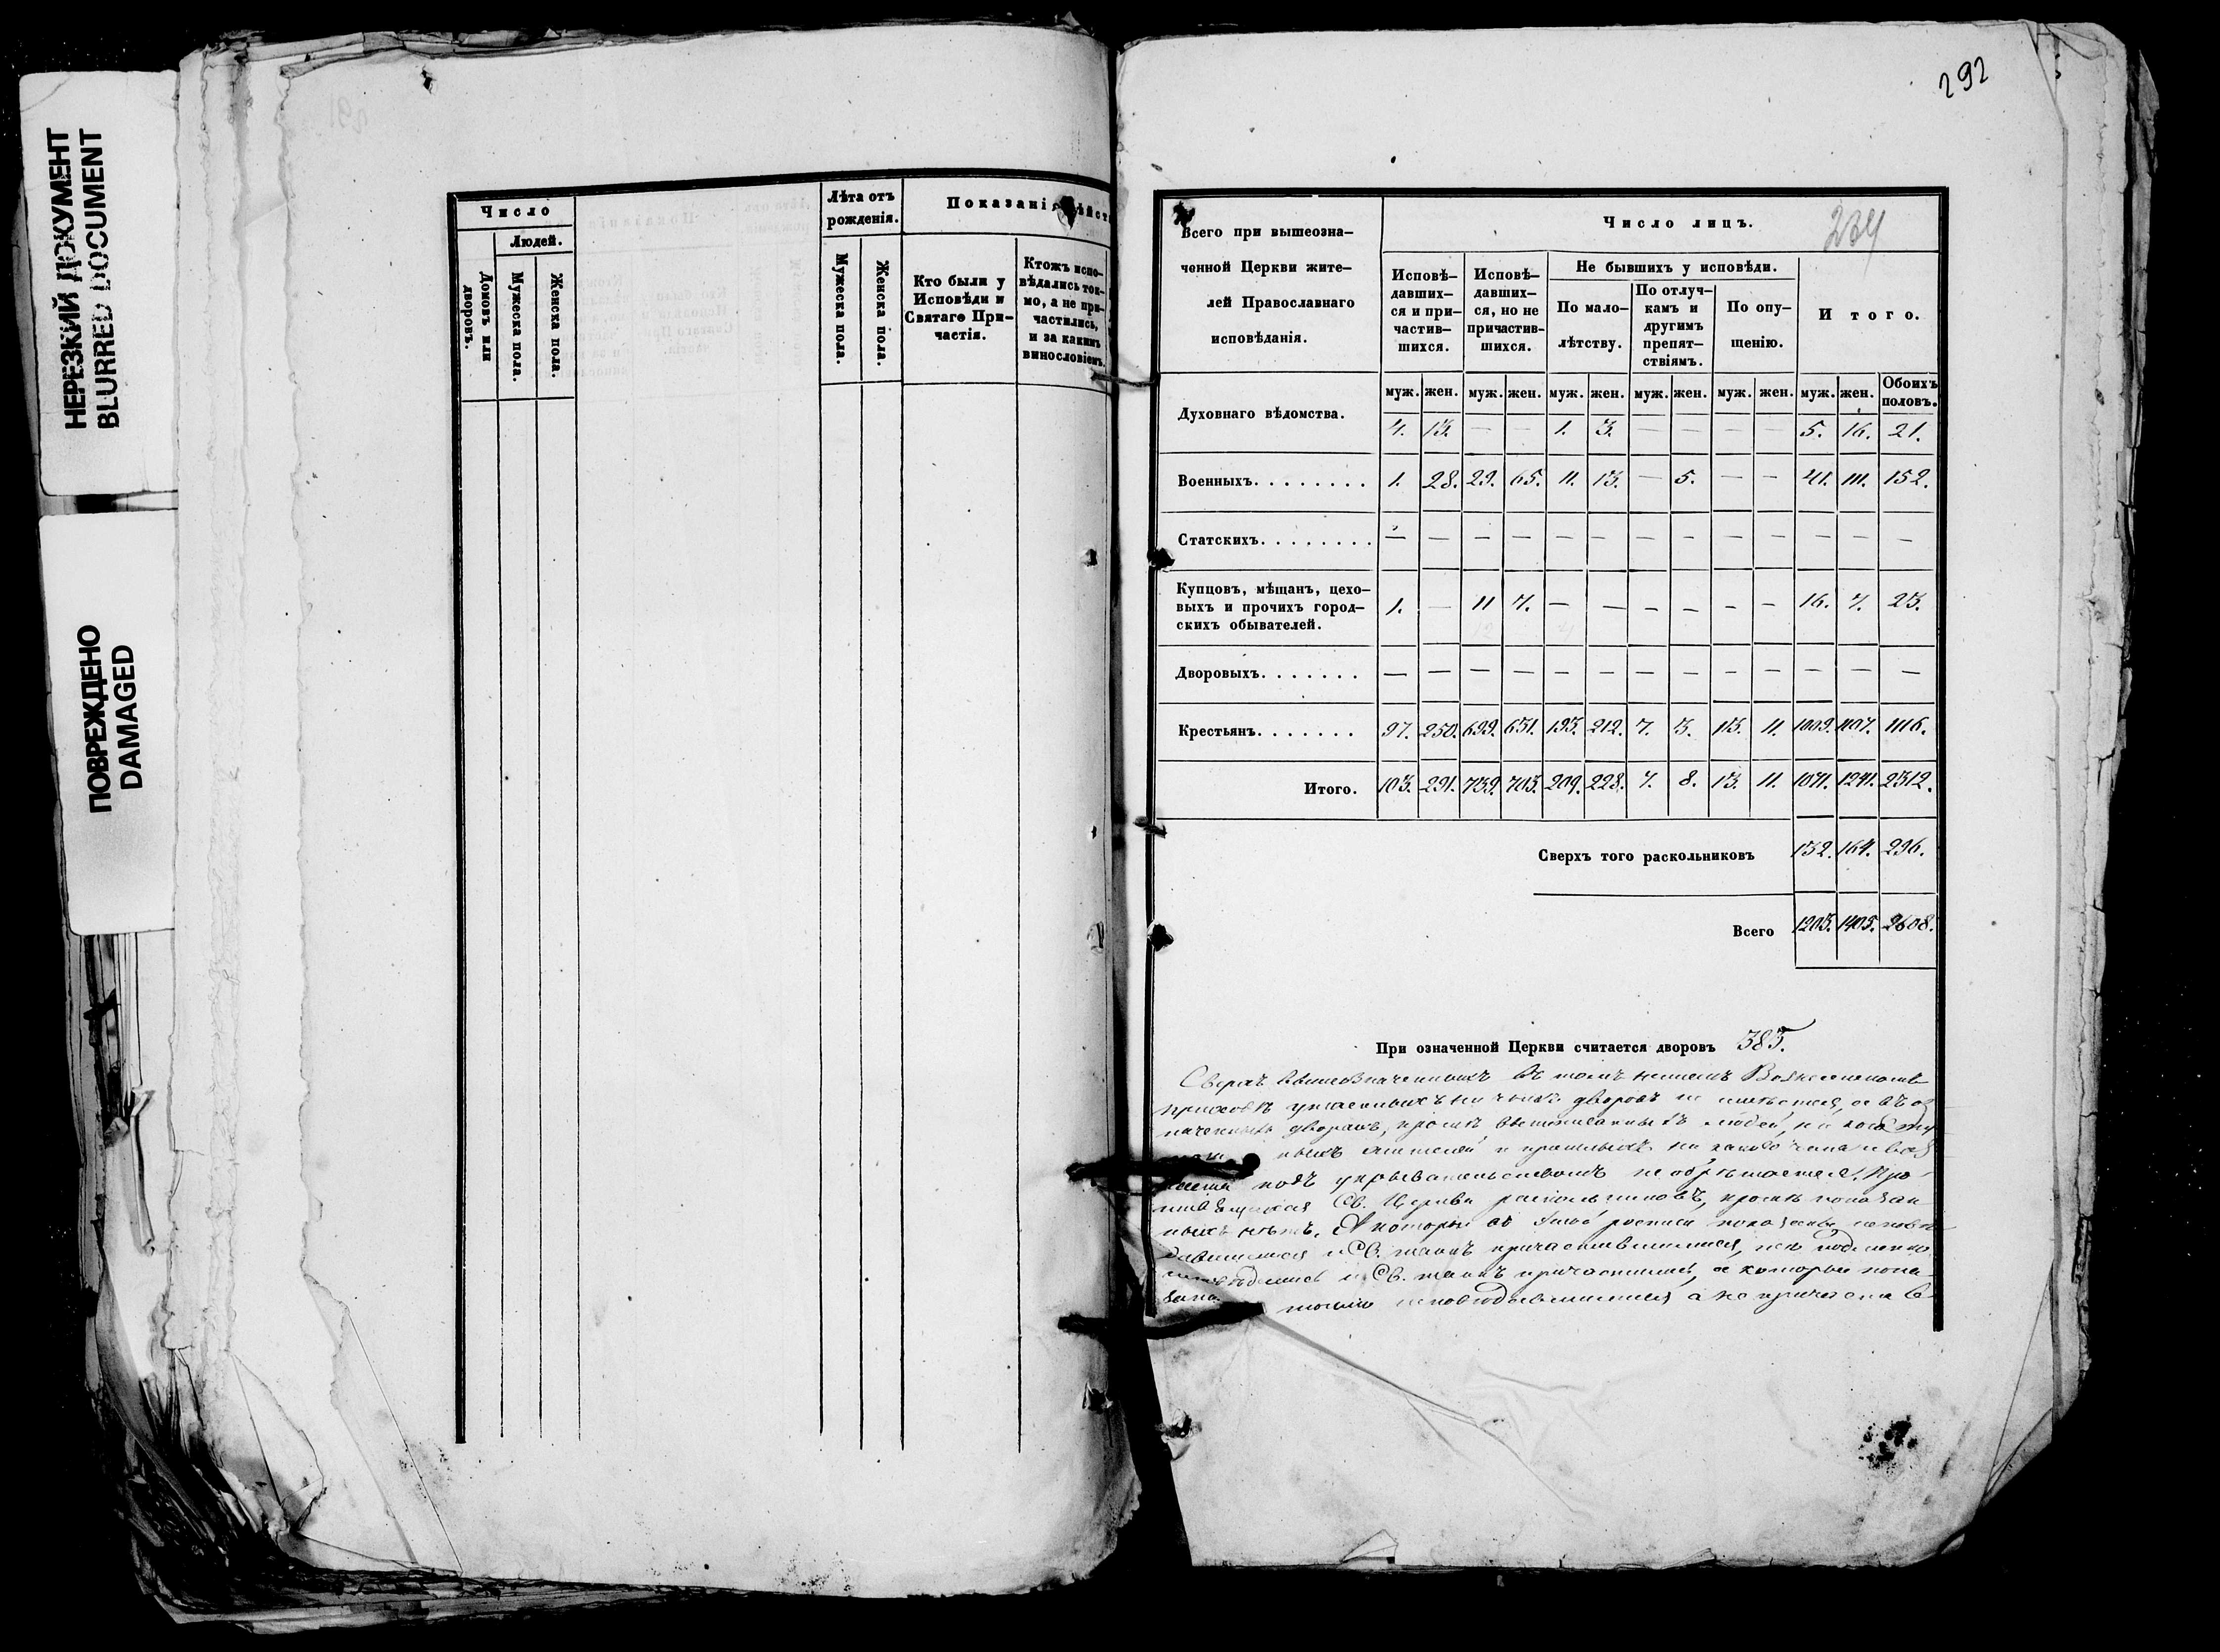 НЕРЕЗКИЙ ДОКУМЕНТ
BLURRED DOCUMENT
ПОВРЕЖДЕНО
DAMAGED
Число
Людей.
Домовъ или дворовъ.
Мужеска пола.
Женска пола.
Лѣта отъ
рожденія.
Мужеска пола.
Женска пола.
Показані
Кто были у
Исповѣди и
Святаго При-
частія.
Ктожъ испо-
вѣдались ток-
мо, а не при-
частились,
и за какимъ
винословіемъ.
292
Всего при вышеозна-
ченной Церкви жите-
лей Православнаго
исповѣданія.
Число лицъ.
234
Исповѣ-
давших-
ся и при-
частив-
шихся.
Исповѣ-
давших-
ся, но не
причастив-
шихся.
Не бывшихъ у исповѣди.
По мало-
лѣтству.
По отлуч-
камъ и
другимъ
препят-
ствіямъ.
По опу-
щенію.
Итого.
муж. жен. муж. жен. муж. жен. муж. жен. муж. жен. муж. жен. Обоихъ половъ.
Духовнаго вѣдомства. 4. 13. — — 1. 3. — — — — 5. 16. 21.
Военныхъ. . . . . . . . 1. 28. 29. 65. 11. 13. — 5. — — 41. 111. 152.
Статскихъ. . . . . . . . — — — — — — — — — — — — —
Купцовъ, мѣщанъ, цехо-
выхъ и прочихъ город-
скихъ обывателей. 1. — 11 7. — — — — — — 16. 7. 23.
Дворовыхъ. . . . . . . — — — — — — — — — — — — —
Крестьянъ. . . . . . . 97. 250. 699. 631. 193. 212. 7. 3. 13. 11. 1009. 1107. 1116.
Итого. 103. 291. 739. 703. 209. 228. 7. 8. 13. 11. 1071. 1241. 2312.
Сверхъ того раскольниковъ 132. 164. 296.
Всего 1203. 1405. 2608.
При означенной Церкви считается дворовъ 385.
Сверхъ вышеозначенныхъ въ томъ нашемъ
приходѣ утаенныхъ дворовъ не имѣется, а въ оз
наченныхъ дворахъ, кромѣ вышеписанныхъ людей,
ныхъ жителей и пришлыхъ
подъ укрывательствомъ не обрѣтается. Про
Св. Церкви раскольниковъ, кромѣ показан
ныхъ нѣтъ. А которые въ росписи показаны исповѣ
давшимися и Св. таинъ причастившимися, тѣ подлинно
исповѣдались и Св. таинъ причастились, а которые пока
заны токмо исповѣдавшимися а не причасти